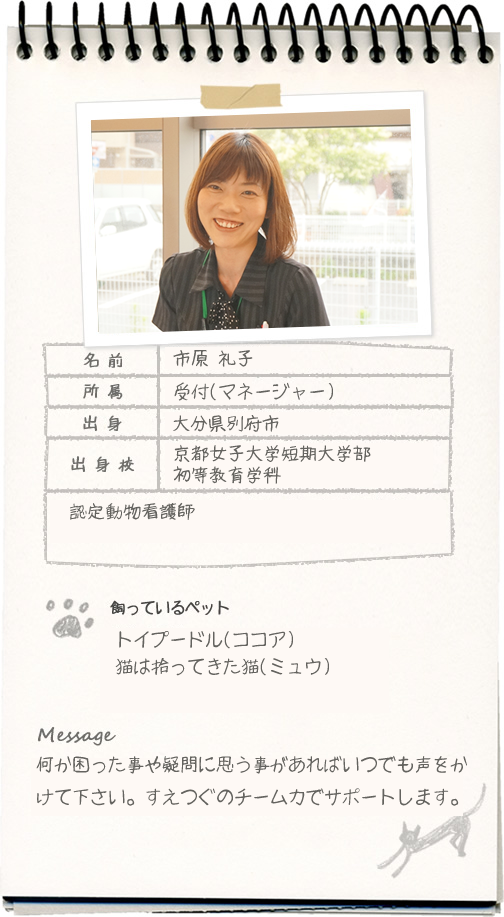 名前 市原 礼子
所属 受付(マネージャー)
出身 大分県別府市
出身校 京都女子大学短期大学部
初等教育学科
認定動物看護師
飼っているペット
トイプードル(ココア)
猫は拾ってきた猫(ミュウ)
Message
何か困った事や疑問に思う事があればいつでも声をか
けて下さい。すえつぐのチーム力でサポートします。